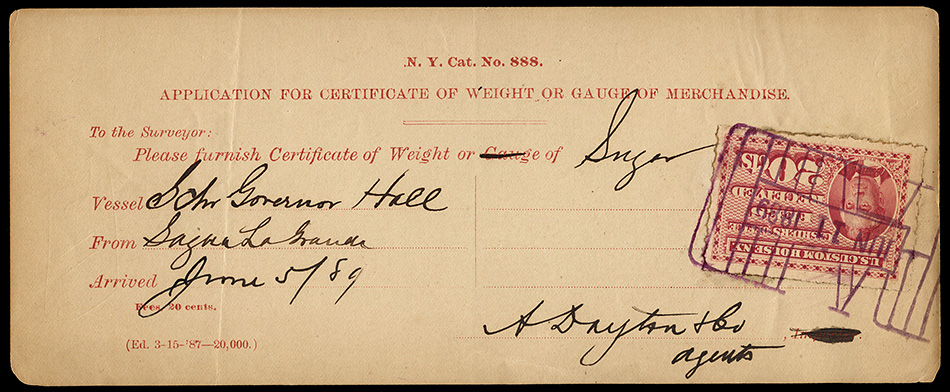 N. Y. Cat. No. 888.
APPLICATION FOR CERTIFICATE OF WEIGHT OR GAUGE OF MERCHANDISE.
To the Surveyor:
Please furnish Certificate of Weight or Gauge of Sugar
Vessel Schr Governor Hall
From Sagua La Grande
Arrived June 5/89
Fees, 20 cents.
A Dayton & Co
agents
(Ed. 3-15-'87—20,000.)
U.S. CUSTOM HOUSE N.Y.
CASHIER'S OFFICE
FEES
RECEIVED
20 CTS
JUN 11 1889